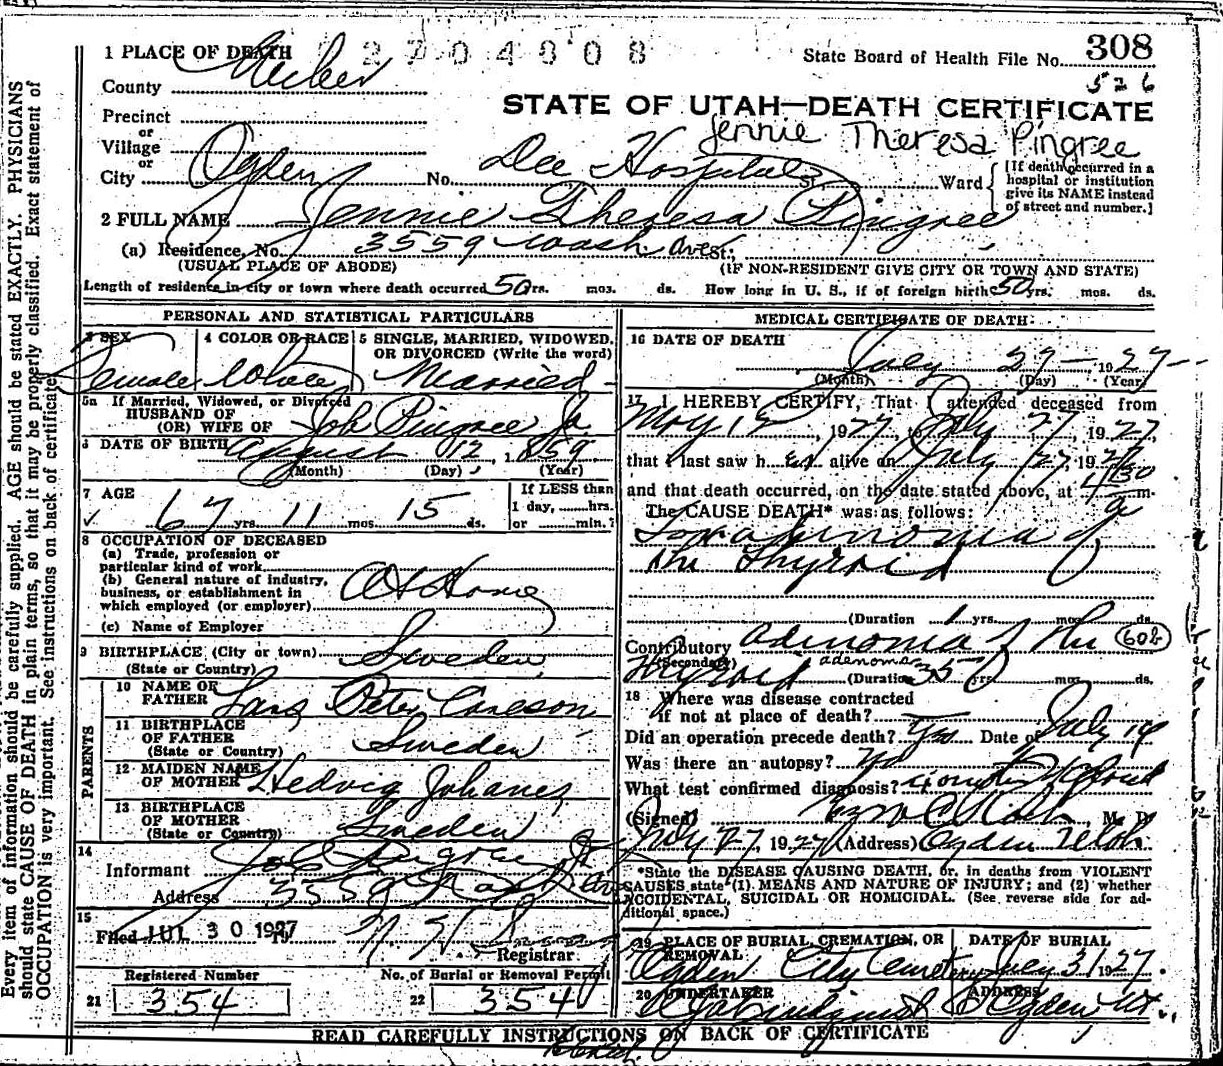 1 PLACE OF DEATH 2704808 State Board of Health File No. 308
County Weber 526
STATE OF UTAH—DEATH CERTIFICATE
Precinct
or
Village
or
Jennie Theresa Pingree
City Ogden No. Dee Hospital St. Ward
[If death occurred in a hospital or institution give its NAME instead of street and number.]
2 FULL NAME Jennie Theresa Pingree
(a) Residence, No. 3559 Wash. Ave St.,
(USUAL PLACE OF ABODE) (IF NON-RESIDENT GIVE CITY OR TOWN AND STATE)
Length of residence in city or town where death occurred 50 yrs. mos. ds. How long in U. S., if of foreign birth 50 yrs. mos. ds.
PERSONAL AND STATISTICAL PARTICULARS
3 SEX Female
4 COLOR OR RACE White
5 SINGLE, MARRIED, WIDOWED, OR DIVORCED (Write the word) Married
5a If Married, Widowed, or Divorced
HUSBAND OF
(OR) WIFE OF Job Pingree
6 DATE OF BIRTH August 12, 1859
(Month) (Day) (Year)
7 AGE 67 yrs. 11 mos. 15 ds.
If LESS than
1 day, hrs.
or min.?
8 OCCUPATION OF DECEASED
(a) Trade, profession or
particular kind of work
(b) General nature of industry,
business, or establishment in
which employed (or employer) At Home
(c) Name of Employer
9 BIRTHPLACE (City or town) Sweden
(State or Country)
PARENTS
10 NAME OF
FATHER Lars Peter Carlson
11 BIRTHPLACE
OF FATHER Sweden
(State or Country)
12 MAIDEN NAME
OF MOTHER Hedvig
13 BIRTHPLACE
OF MOTHER Sweden
(State or Country)
14
Informant Job Pingree
Address 3559 Wash Ave
15
Filed JUL 30 1927
Registrar
Registered Number No. of Burial or Removal Permit
21 354 22 354
MEDICAL CERTIFICATE OF DEATH
16 DATE OF DEATH
July 27 1927
(Month) (Day) (Year)
17 I HEREBY CERTIFY, That I attended deceased from
May 1927, to July 27, 1927,
that I last saw her alive on July 27, 1927
and that death occurred, on the date stated above, at 4:30 m.
The CAUSE DEATH* was as follows:
Tox adenoma of
the Thyroid
(Duration 1 yrs. mos. ds.
Contributory adenoma of the 60b
(Secondary) Thyroid adenoma (Duration 35 yrs. mos. ds.
18 Where was disease contracted
if not at place of death?
Did an operation precede death? Yes Date of July 19
Was there an autopsy? No
What test confirmed diagnosis?
(Signed) M. D.
July 27, 1927 (Address) Ogden Utah
*State the DISEASE CAUSING DEATH, or, in deaths from VIOLENT
CAUSES state (1) MEANS AND NATURE OF INJURY; and (2) whether
ACCIDENTAL, SUICIDAL OR HOMICIDAL. (See reverse side for ad-
ditional space.)
19 PLACE OF BURIAL, CREMATION, OR REMOVAL Ogden City Cemetery
DATE OF BURIAL July 31 1927.
20 UNDERTAKER
ADDRESS Ogden Ut.
READ CAREFULLY INSTRUCTIONS ON BACK OF CERTIFICATE
Every item of information should be carefully supplied. AGE should be stated EXACTLY. PHYSICIANS
should state CAUSE OF DEATH in plain terms, so that it may be properly classified. Exact statement of
OCCUPATION is very important. See instructions on back of certificate.